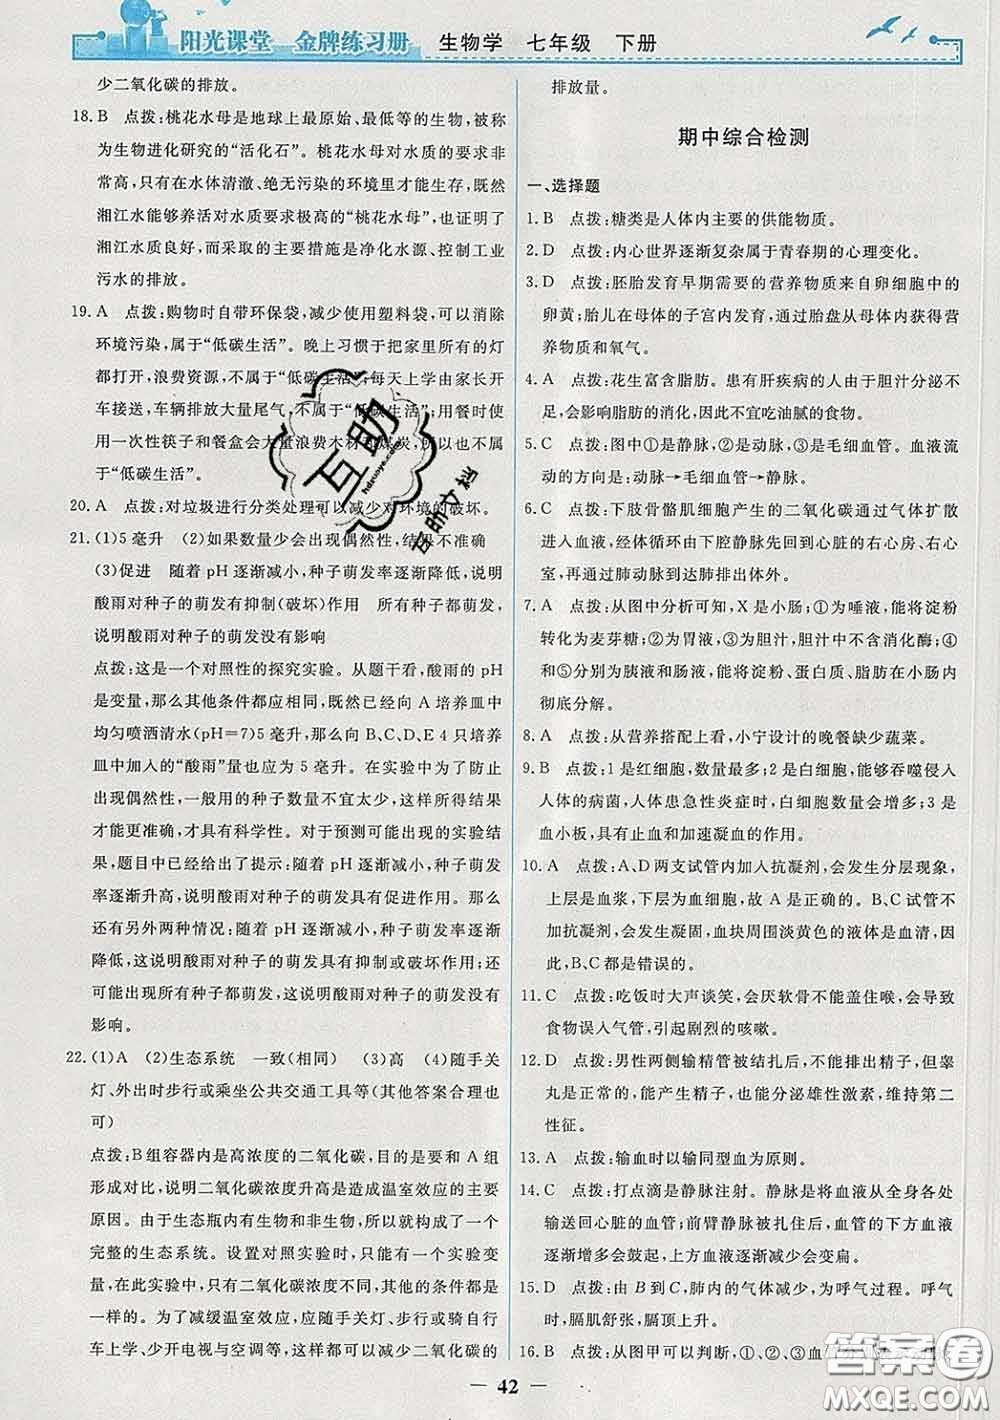 阳光课堂 金牌练习册 生物学 七年级 下册
少二氧化碳的排放。
18. B 点拨:桃花水母是地球上最原始、最低等的生物,被称
为生物进化研究的“活化石”。桃花水母对水质的要求非
常高,只有在水体清澈、绝无污染的环境里才能生存,既然
湘江水能够养活对水质要求极高的“桃花水母”,也证明了
湘江水质良好,而采取的主要措施是净化水源、控制工业
污水的排放。
19. A 点拨:购物时自带环保袋,减少使用塑料袋,可以消除
环境污染,属于“低碳生活”。晚上习惯于把家里所有的灯
都打开,浪费资源,不属于“低碳生活”;每天上学由家长开
车接送,车辆排放大量尾气,不属于“低碳生活”;用餐时使
用一次性筷子和餐盒会大量浪费木材和煤炭,所以也不属
于“低碳生活”。
20. A 点拨:对垃圾进行分类处理可以减少对环境的破坏。
21. (1)5 毫升 (2)如果数量少会出现偶然性,结果不准确
(3)促进 随着 pH 逐渐减小,种子萌发率逐渐降低,说明
酸雨对种子的萌发有抑制(破坏)作用 所有种子都萌发,
说明酸雨对种子的萌发没有影响
点拨:这是一个对照性的探究实验。从题干看,酸雨的 pH
是变量,那么其他条件都应相同,既然已经向 A 培养皿中
均匀喷洒清水(pH=7)5 毫升,那么向 B、C、D、E 4 只培养
皿中加入的“酸雨”量也应为 5 毫升。在实验中为了防止
出现偶然性,一般用的种子数量不宜太少,这样所得结果
才能更准确,才具有科学性。对于预测可能出现的实验结
果,题目中已经给出了提示:随着 pH 逐渐减小,种子萌发
率逐渐升高,说明酸雨对种子的萌发具有促进作用。可能
还会有另外两种情况:随着 pH 逐渐减小,种子萌发率逐渐
降低,这说明酸雨对种子的萌发具有抑制或破坏作用;还
可能出现所有种子都萌发,这说明酸雨对种子的萌发没有
影响。
22. (1)A (2)生态系统 一致(相同) (3)高 (4)随手关
灯、外出时步行或乘坐公共交通工具等(其他答案合理也
可)
点拨:B 组容器内是高浓度的二氧化碳,目的是要和 A 组
形成对比,说明二氧化碳浓度升高是造成温室效应的主要
原因。由于生态瓶内有生物和非生物,所以就构成了一个
完整的生态系统。设置对照实验时,只能有一个实验变
量,在此实验中,只有二氧化碳浓度不同,其他的条件都是
一样的。为了减缓温室效应,应随手关灯、步行或骑自行
车上学、少开电视与空调等,这样都可以减少二氧化碳的
排放量。
期中综合检测
一、选择题
1. B 点拨:糖类是人体内主要的供能物质。
2. D 点拨:内心世界逐渐复杂属于青春期的心理变化。
3. D 点拨:胚胎发育早期需要的营养物质来自卵细胞中的
卵黄;胎儿在母体的子宫内发育,通过胎盘从母体获得营
养物质和氧气。
4. A 点拨:花生富含脂肪。患有肝疾病的人由于胆汁分泌不
足,会影响脂肪的消化,因此不宜吃油腻的食物。
5. C 点拨:图中①是静脉,②是动脉,③是毛细血管。血液流
动的方向是:动脉→毛细血管→静脉。
6. C 点拨:下肢骨骼肌细胞产生的二氧化碳通过气体扩散
进入血液,经体循环由下腔静脉先回到心脏的右心房、右心
室,再通过肺动脉到达肺排出体外。
7. A 点拨:从图中分析可知,X 是小肠;①为唾液,能将淀粉
转化为麦芽糖;②为胃液,③为胆汁,胆汁中不含消化酶;④
和⑤分别为胰液和肠液,能将淀粉、蛋白质、脂肪在小肠内
彻底分解。
8. A 点拨:从营养搭配上看,小宁设计的晚餐缺少蔬菜。
9. B 点拨:1 是红细胞,数量最多;2 是白细胞,能够吞噬侵入
人体的病菌,人体患急性炎症时,白细胞数量会增多;3 是
血小板,具有止血和加速凝血的作用。
10. A 点拨:A、D 两支试管内加入抗凝剂,会发生分层现象,
上层是血浆,下层是血细胞,故 A 是正确的。B、C 试管不
加抗凝剂,会发生凝固,血块周围淡黄色的液体是血清,因
此,B、C 都是错误的。
11. C 点拨:吃饭时大声谈笑,会厌软骨不能盖住喉,会导致
食物误入气管,引起剧烈的咳嗽。
12. D 点拨:男性两侧输精管被结扎后,不能排出精子,但睾
丸是正常的,能产生精子,可以分泌雄性激素,维持第二
性征。
13. A 点拨:输血时以输同型血为原则。
14. C 点拨:打点滴是静脉注射。静脉是将血液从全身各处
输送回心脏的血管;前臂静脉被扎住后,血管的下方血液
逐渐增多会鼓起,上方血液逐渐减少会变扁。
15. D 点拨:由 B 到 C,肺内的气体减少,为呼气过程。呼气
时,膈肌舒张,膈顶上升。
16. B 点拨:从图甲可以判断,①、②、③血
42
互助
hdzuoye.com
互助文档
答案圈
MXQE.COM